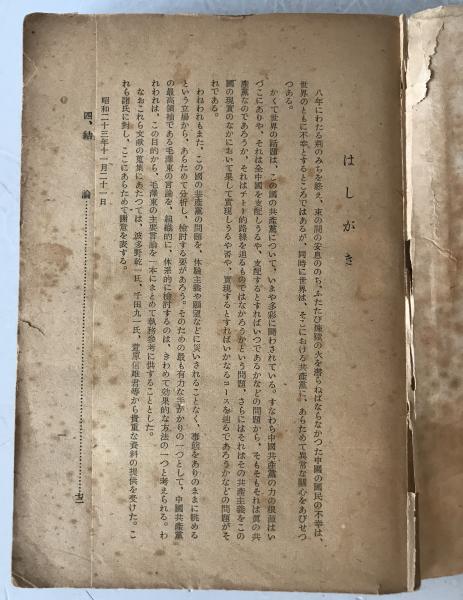 はしがき
八年にわたる荊のみちを終え、束の間の安息ののち、ふたたび煉獄の火を潜らねばならなかつた中國の國民の不幸は、
世界のともに不幸とするところではあるが、同時に世界は、そこにおける共產黨に、あらためて異常な關心をあびせつ
つある。
かくて世界の話題は、この國の共產黨について、いまや多彩に問われている。すなわち中國共產黨の力の根源はい
づこにありや、それは全中國を支配しうるや、支配するとすればいつであるかなどの問題から、そもそもそれは眞の共
產黨なのであろうか、それはチトー的路線を辿るものではなかろうかという問題、さらにはそれはその共產主義をこの
國の現實のなかにおいて果して實現しうるや否や、實現するとすればいかなるコースを辿るであろうかなどの問題がそ
れである。
われわれもまた、この國の共產黨の問題を、体驗主義や願望などに災いされることなく、事態をありのままに眺める
という立場から、あらためて分析し、檢討する要があろう。そのための最も有力な手がかりの一つとして、中國共產黨
の最高領袖である毛澤東の言論を、組織的に、体系的に檢討するのは、きわめて効果的な方法の一つと考えられる。わ
れわれは、この目的から、毛澤東の主要言論を一本にまとめて執務參考に供することとした。
なおこれら文獻の蒐集にあたつては、波多野乾一氏、千田九一氏、萱原信雄君等から貴重な資料の提供を受けた。こ
れら諸氏に對し、ここにあらためて謝意を表する。
昭和二十三年十一月二十一日
四、結論